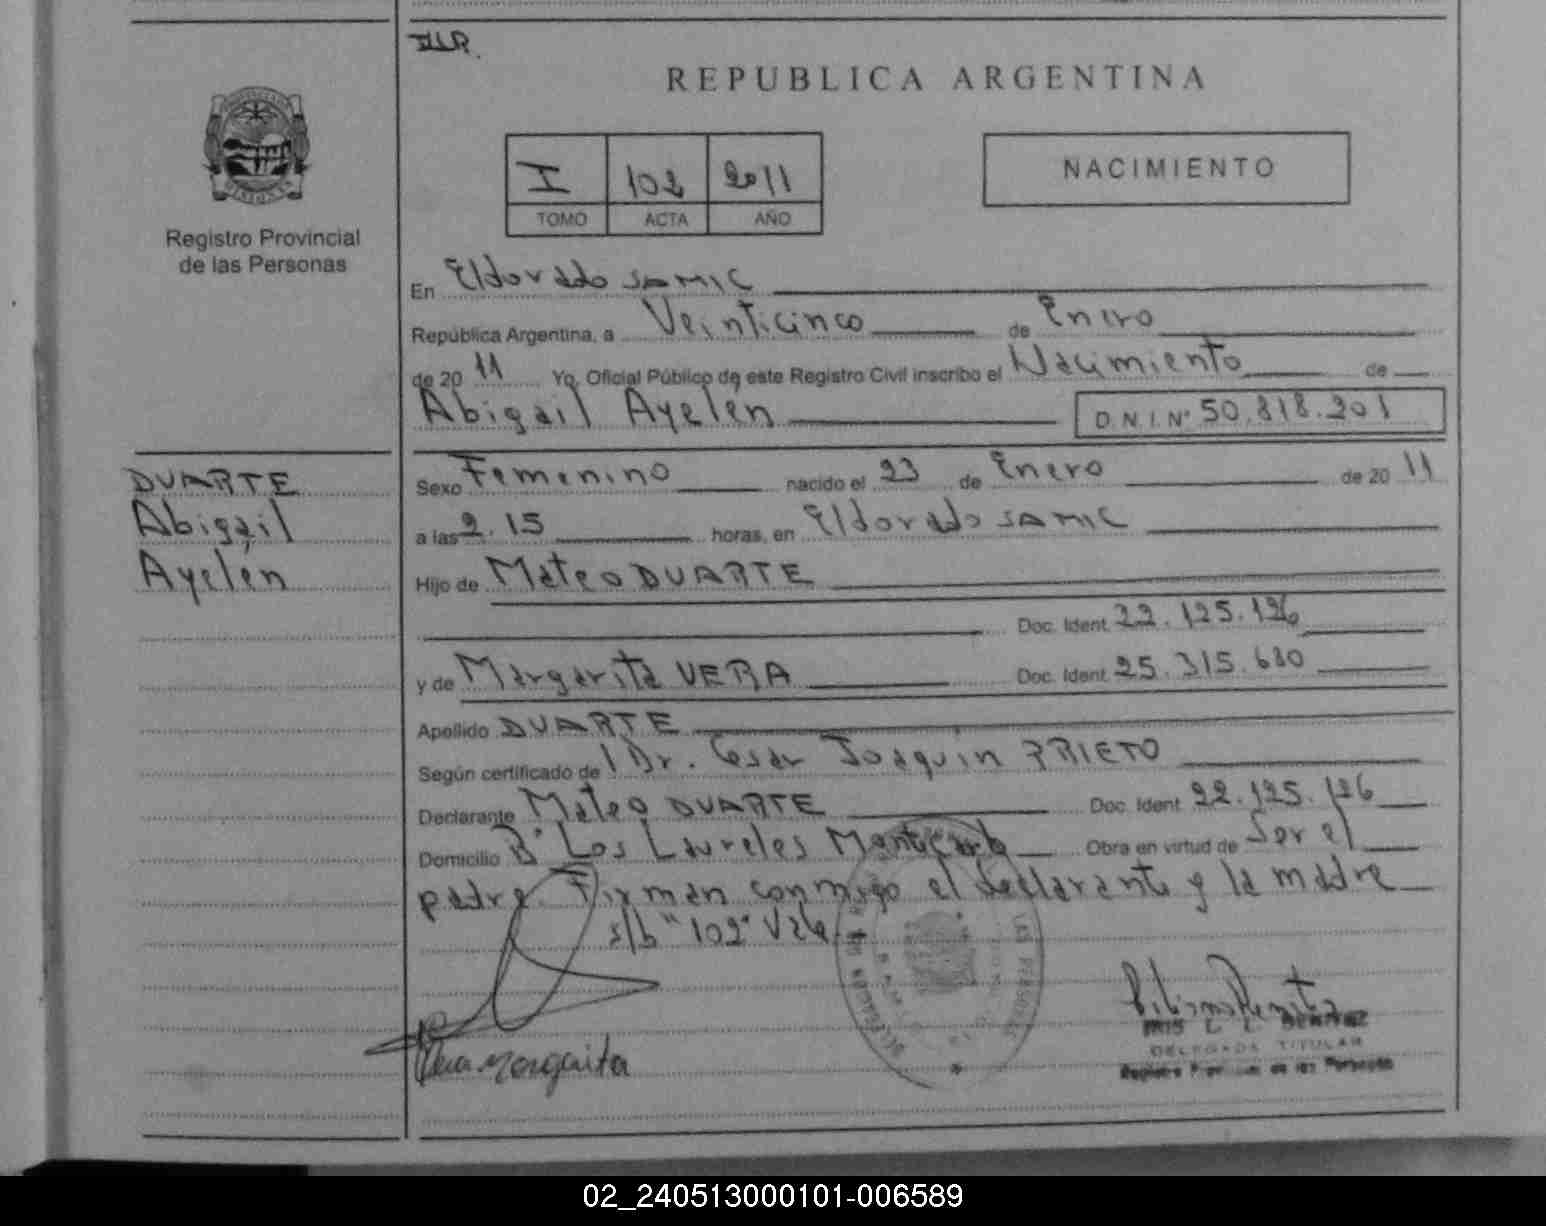 REPUBLICA ARGENTINA
I 102 2011
TOMO ACTA AÑO
NACIMIENTO
Registro Provincial
de las Personas
En Eldorado SAMIC
República Argentina, a Veinticinco de Enero
de 20 11 Yo, Oficial Público de este Registro Civil inscribo el Nacimiento de
Abigail Ayelén D.N.I.Nº 50.818.201
DUARTE
Abigail
Ayelén
Sexo Femenino nacido el 23 de Enero de 20 11
a las 2.15 horas, en Eldorado SAMIC
Hijo de Mateo DUARTE
Doc. Ident. 22.125.126
y de Margarita VERA Doc. Ident. 25.315.680
Apellido DUARTE
Según certificado de Dr. Cesar Joaquin PRIETO
Declarante Mateo DUARTE Doc. Ident. 22.125.126
Domicilio Bº Los Laureles Montecarlo Obra en virtud de Ser el
padre. Firman conmigo el declarante y la madre
s/b "102" Vale
Vera Margarita
BENITEZ
DELEGADA TITULAR
Registro Provincial de las Personas
02_240513000101-006589